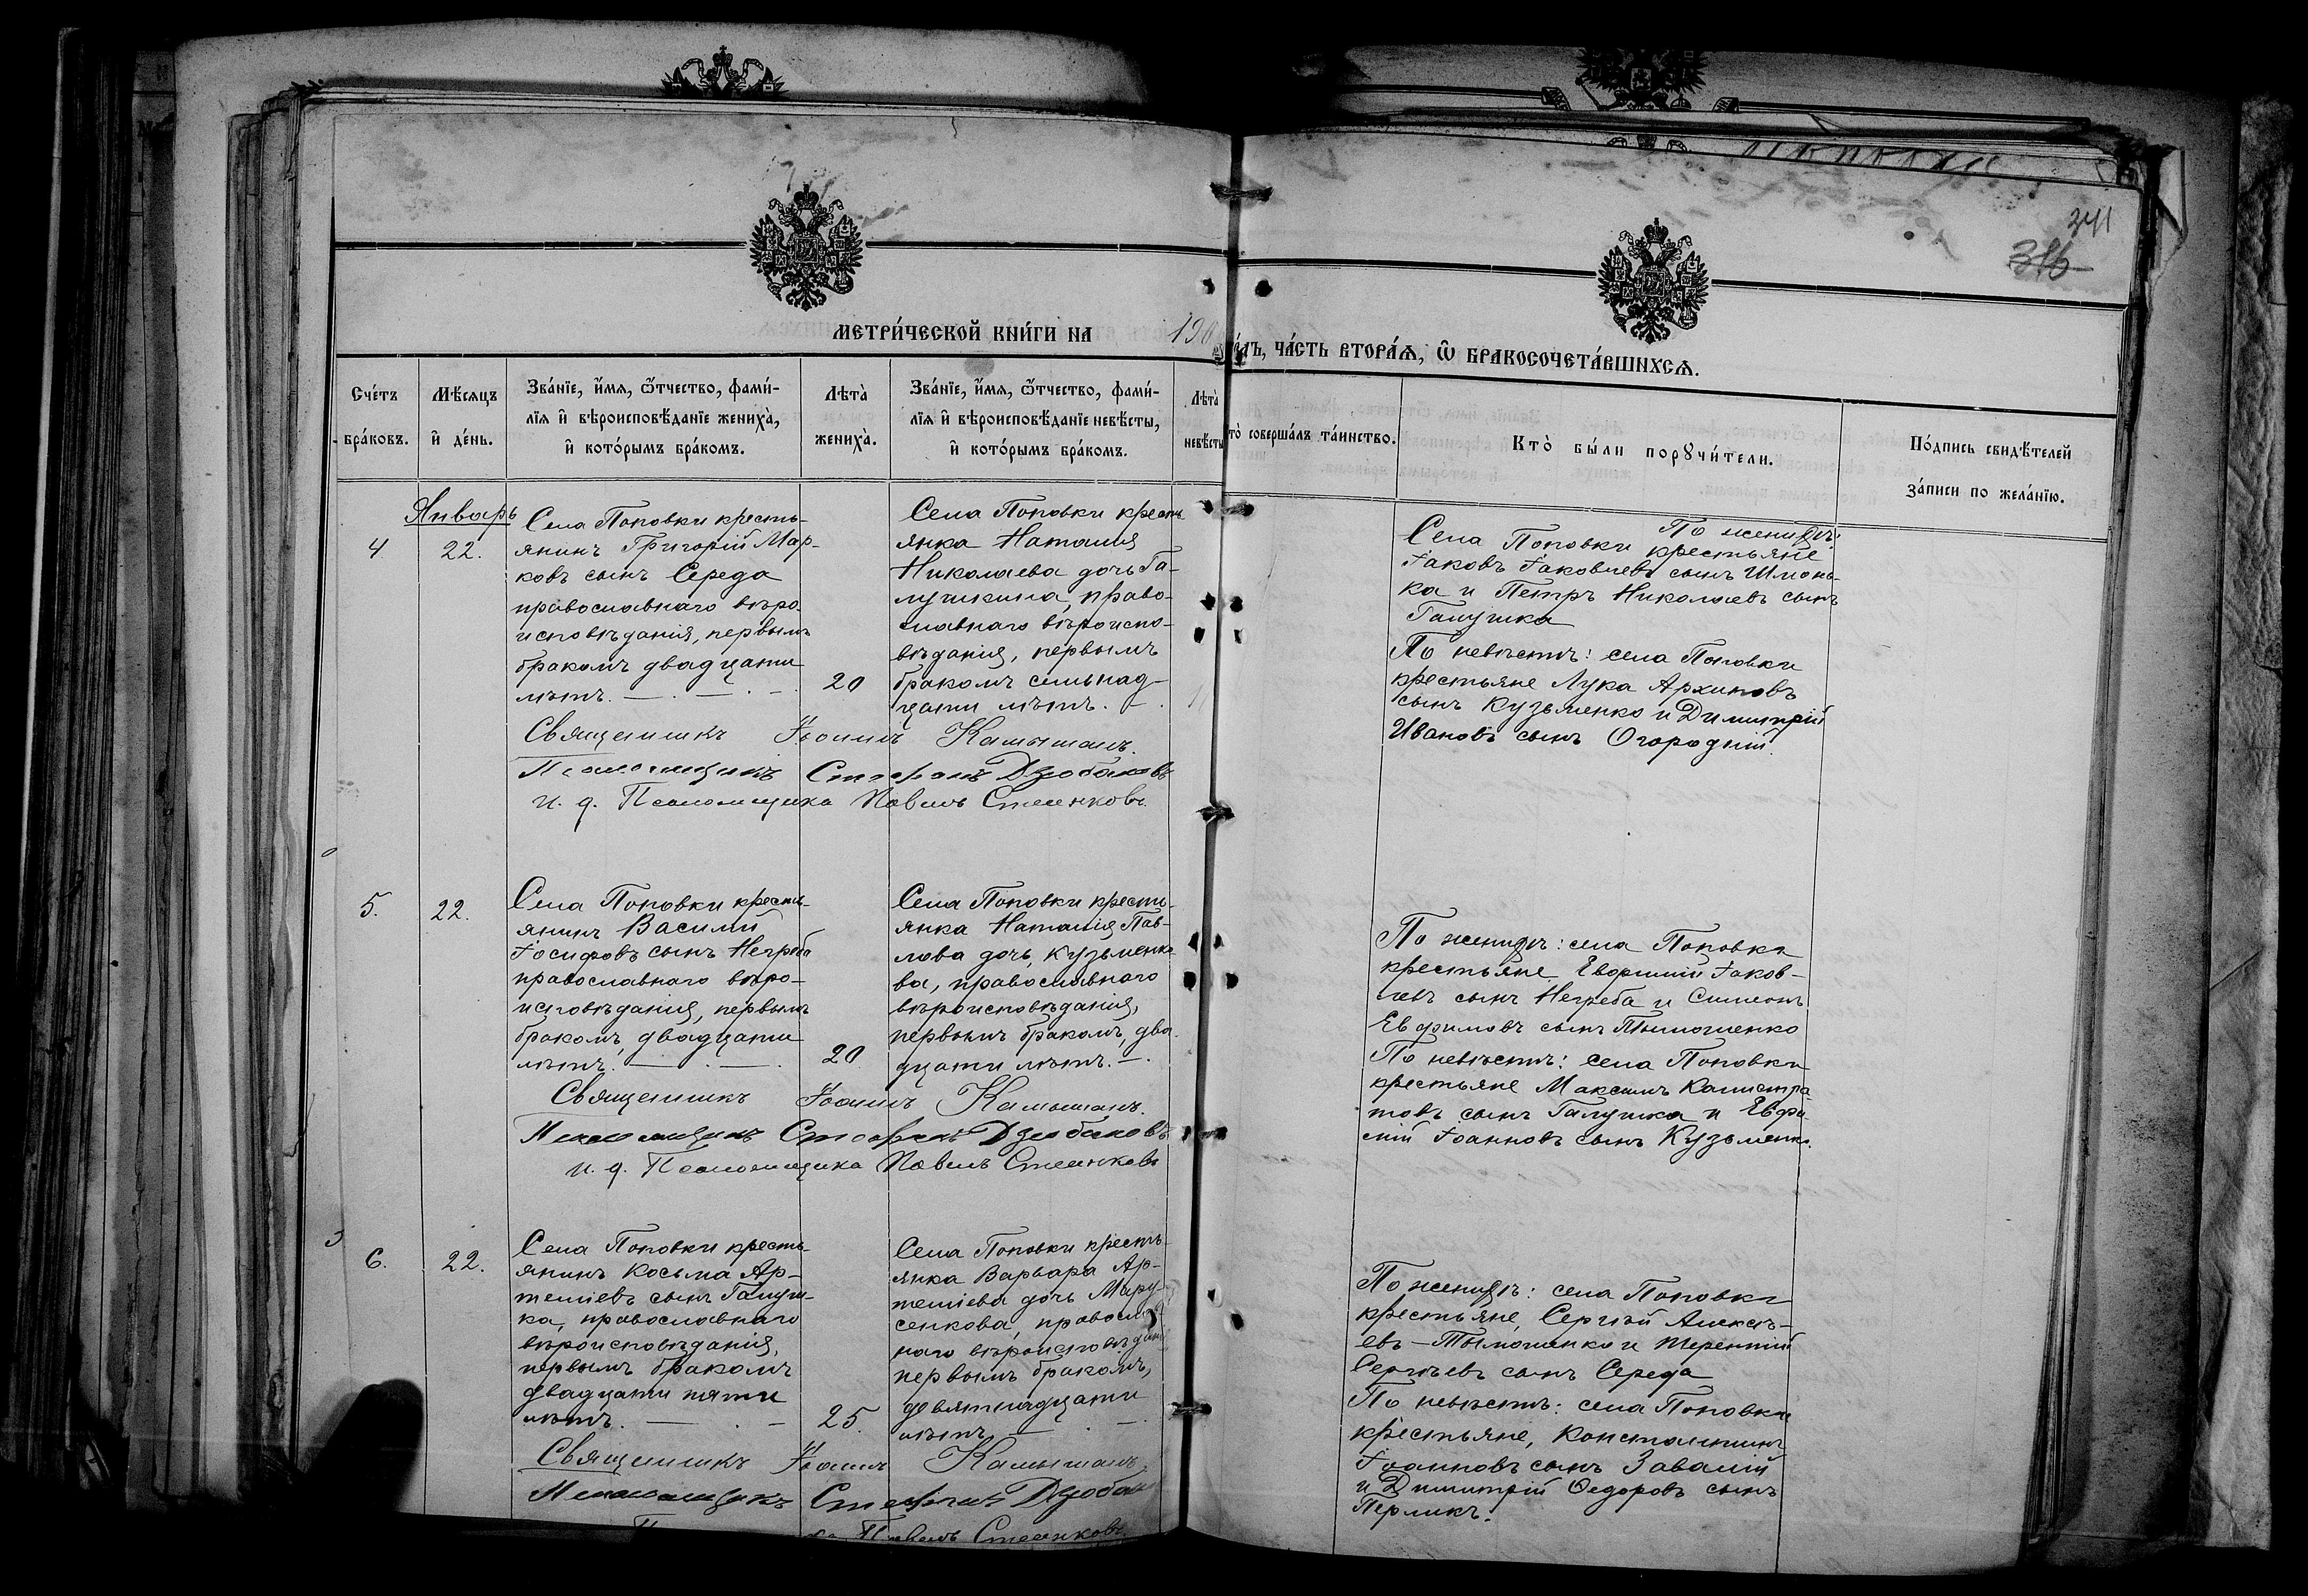 341
316
МЕТРИ́ЧЕСКОЙ КНИ́ГИ НА 190
ЧА́СТЬ ВТОРА́Ѧ, Ѿ БРАКОСОЧЕТА́ВШИХСѦ.
Сче́тъ бра́ковъ.
Мѣ́сяцъ и҆ де́нь.
Зва́нїе, и҆́мя, ѻ҆́тчество, фами́-
лїя и҆ вѣроисповѣ́данїе жениха̀,
и҆ кото́рымъ бра́комъ.
Лѣта̀ жениха̀.
Зва́нїе, и҆́мя, ѻ҆́тчество, фами́-
лїя и҆ вѣроисповѣ́данїе невѣ́сты,
и҆ кото́рымъ бра́комъ.
Лѣта̀ невѣ́сты
то̀ соверша́лъ та́инство.
Кто̀ бы́ли порꙋчи́тели.
По́дпись свидѣ́телей
за́писи по жела́нїю.
Январь
4
22.
Села Поповки кресть-
янинъ Григорій Мар-
ковъ сынъ Середа
православнаго вѣро-
исповѣданія, первымъ
бракомъ двадцати
лѣтъ.
20
Села Поповки кресть
янка Наталія
Николаева дочь Га-
лушкина, право-
славнаго вѣроиспо-
вѣданія, первымъ
бракомъ семьнад-
цати лѣтъ.
Священникъ Іоаннъ Камышанъ.
Псаломщикъ Стефанъ Дзюбановъ
и. д. Псаломщика Павелъ Стеенковъ.
По женихѣ:
Села Поповки крестьяне
Іаковъ Іаковлевъ сынъ Шмонь-
ка и Петръ Николаевъ сынъ
Галушка
По невѣстѣ: села Поповки
крестьяне Лука Архиповъ
сынъ Кузьменко и Димитрій
Ивановъ сынъ Огородній.
5.
22.
Села Поповки кресть-
янинъ Василій
Іосифовъ сынъ Негреба
православнаго вѣро-
исповѣданія, первымъ
бракомъ, двадцати
лѣтъ.
20
Села Поповки кресть-
янка Наталія Пав-
лова дочь, Кузьменко-
ва, православнаго
вѣроисповѣданія,
первымъ бракомъ, два-
дцати лѣтъ.
Священникъ Іоаннъ Камышанъ.
Псаломщикъ Стефанъ Дзюбановъ
и. д. Псаломщика Павелъ Стеенковъ
По женихѣ: села Поповки
крестьяне Евфимій Іаков-
левъ сынъ Негреба и Симеонъ
Евфимовъ сынъ Тымошенко
По невѣстѣ: села Поповки
крестьяне Максимъ Калистра-
товъ сынъ Галушка и Евфи-
мій Іоанновъ сынъ Кузьменко.
6.
22.
Села Поповки кресть-
янинъ Косьма Ар-
теміевъ сынъ Галуш-
ка, православнаго
вѣроисповѣданія,
первымъ бракомъ
двадцати пяти
лѣтъ.
25
Села Поповки кресть-
янка Варвара Ар-
теміева дочь Мару-
сенкова, православ
наго вѣроисповѣдан
первымъ бракомъ,
девятнадцати
лѣтъ
Священникъ Іоаннъ Камышанъ.
Псаломщикъ Стефанъ Дзюбан
Павелъ Стеенковъ.
По женихѣ: села Поповки
крестьяне, Сергѣй Алексѣ-
евъ Тымошенко и Терентій
Сергѣевъ сынъ Середа
По невѣстѣ: села Поповки
крестьяне, Константинъ
Іоанновъ сынъ Завалій
и Димитрій Ѳедоровъ сынъ
Перликъ.